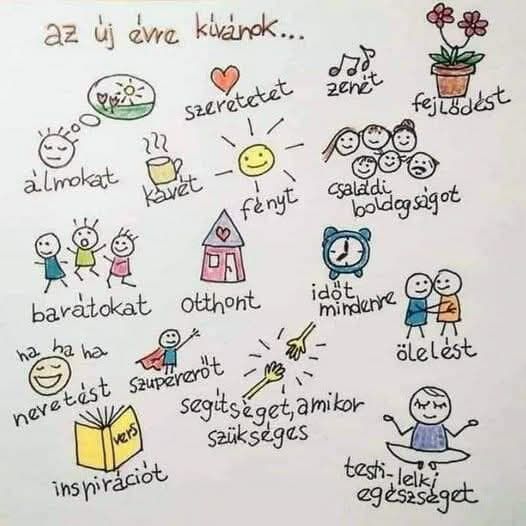 az új évre kívánok...
szeretetet
zenét
fejlődést
álmokat
kávét
fényt
családi
boldogságot
barátokat
otthont
időt
mindenre
ölelést
ha ha ha
nevetést
szupererőt
segítséget, amikor
szükséges
vers
inspirációt
testi-lelki
egészséget